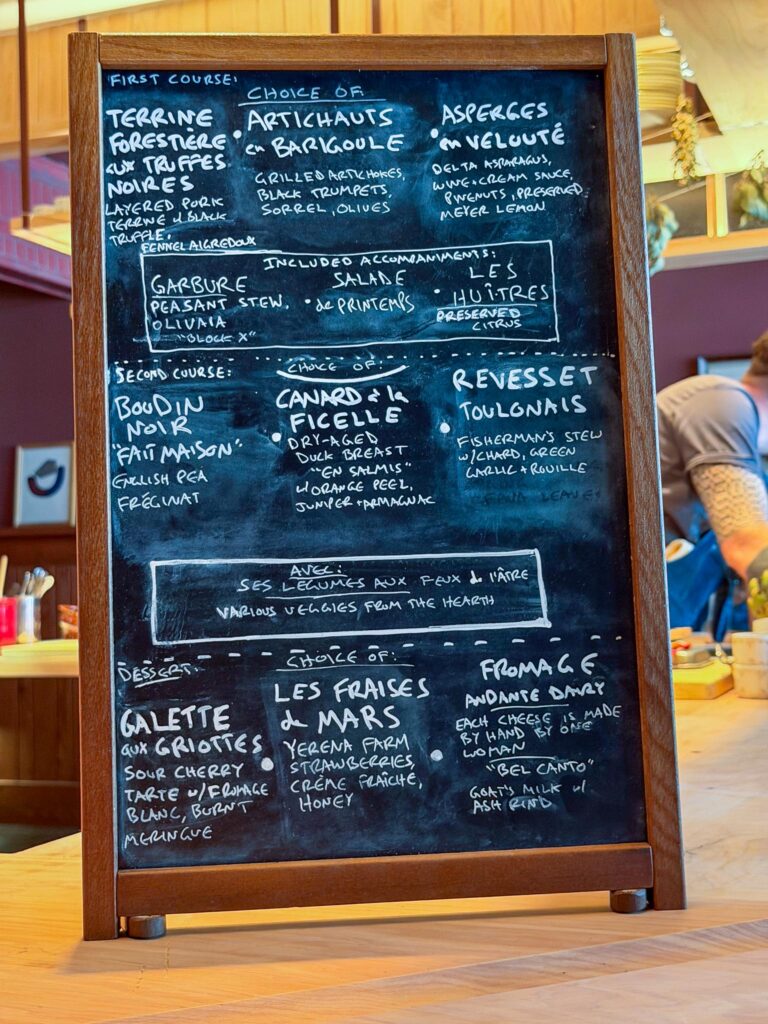 FIRST COURSE:
CHOICE OF
TERRINE
FORESTIÈRE
aux TRUFFES
NOIRES
LAYERED PORK
TERRINE w/ BLACK
TRUFFLE,
FENNEL AIGREDOUX
• ARTICHAUTS
en BARIGOULE
GRILLED ARTICHOKES,
BLACK TRUMPETS,
SORREL, OLIVES
• ASPERGES
en VELOUTÉ
DELTA ASPARAGUS,
WINE + CREAM SAUCE,
PINENUTS, PRESERVED
MEYER LEMON
INCLUDED ACCOMPANIMENTS:
GARBURE
PEASANT STEW,
OLIVAIA
"BLOCK X"
• SALADE
de PRINTEMPS
• LES
HUÎTRES
PRESERVED
CITRUS
SECOND COURSE:
CHOICE OF:
BOUDIN
NOIR
"FAIT MAISON"
ENGLISH PEA
FRÉGINAT
• CANARD à la
FICELLE
DRY-AGED
DUCK BREAST
"EN SALMIS"
w/ ORANGE PEEL,
JUNIPER + ARMAGNAC
• REVESSET
TOULONAIS
FISHERMAN'S STEW
W/CHARD, GREEN
GARLIC + ROUILLE
AVEC:
SES LÉGUMES AUX FEUX de l'ÂTRE
VARIOUS VEGGIES FROM THE HEARTH
DESSERT:
CHOICE OF:
GALETTE
aux GRIOTTES
SOUR CHERRY
TARTE w/ FROMAGE
BLANC, BURNT
MERINGUE
• LES FRAISES
de MARS
YERENA FARM
STRAWBERRIES,
CRÈME FRAÎCHE,
HONEY
• FROMAGE
ANDANTE DAIRY
EACH CHEESE IS MADE
BY HAND BY ONE
WOMAN
"BEL CANTO"
GOAT'S MILK w/
ASH RIND